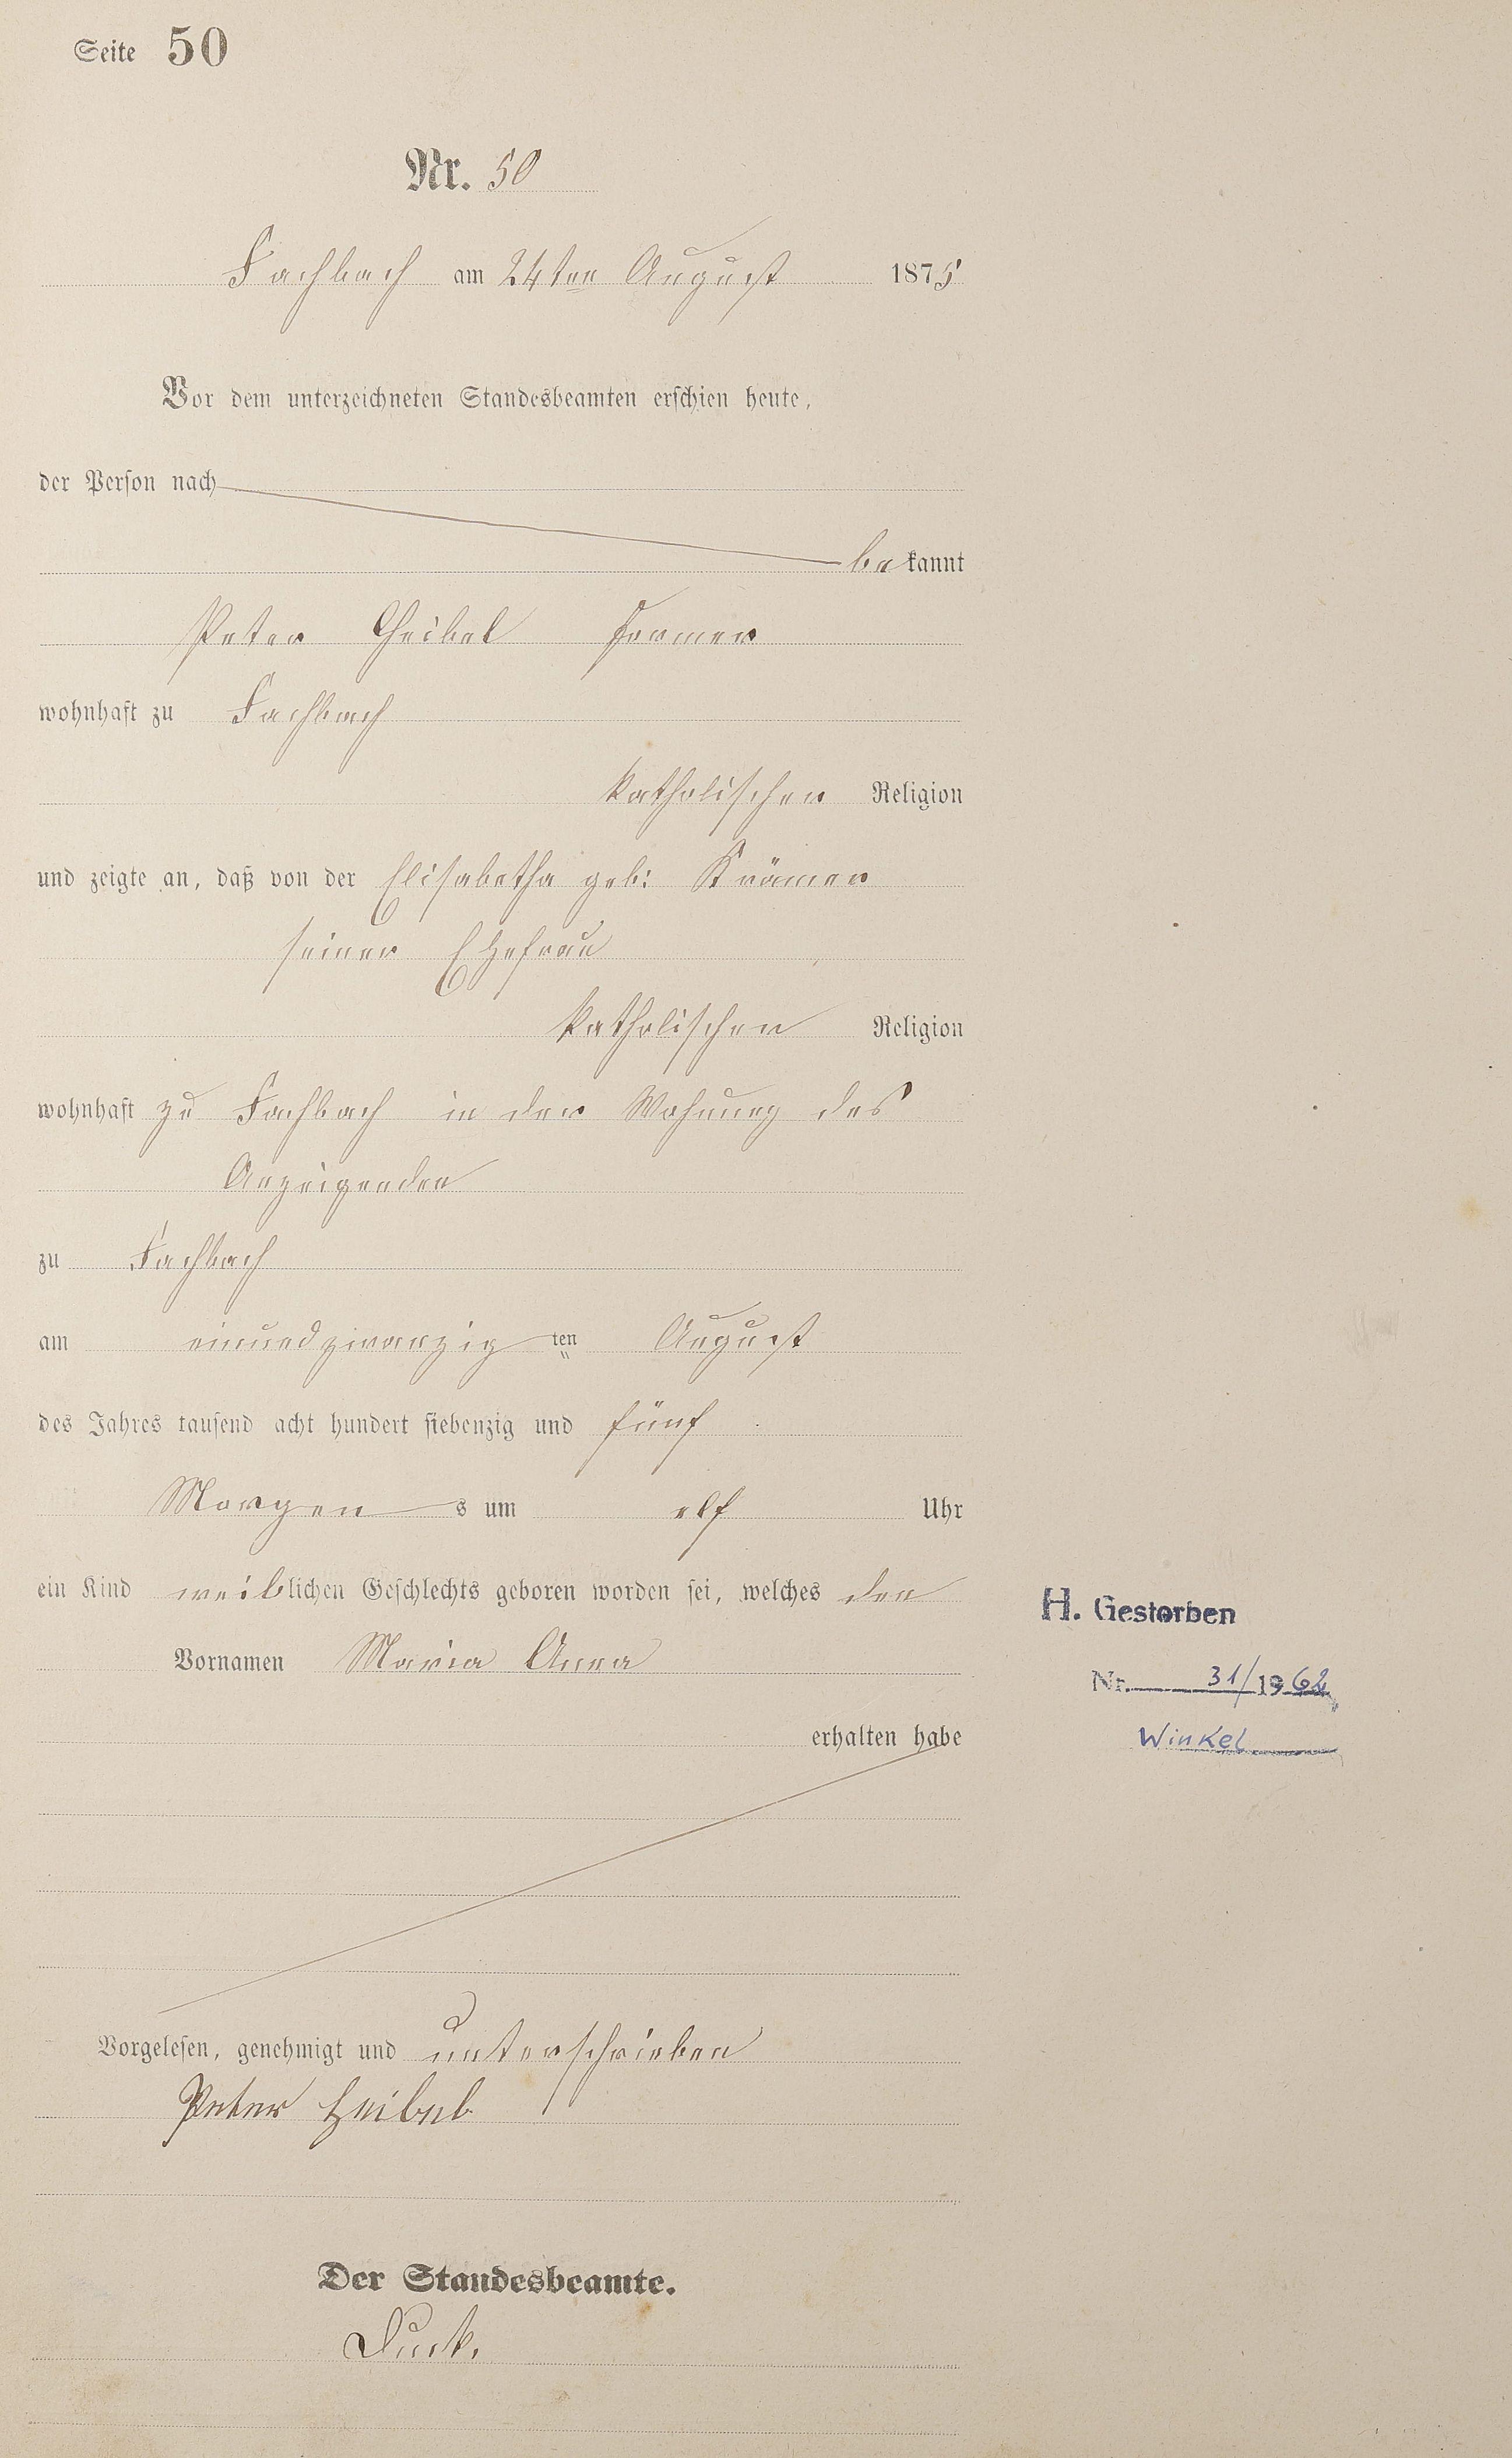 Seite 50
Nr. 50
Fachbach am 24ten August 1875
Vor dem unterzeichneten Standesbeamten erschien heute,
der Person nach
bekannt
Peter Heibel Former
wohnhaft zu Fachbach
katholischer Religion
und zeigte an, daß von der Elisabetha geb: Krämer
seiner Ehefrau
katholischen Religion
wohnhaft zu Fachbach in der Wohnung des
Anzeigenden
zu Fachbach
am einundzwanzigten August
des Jahres tausend acht hundert siebenzig und fünf
Morgens um elf Uhr
ein Kind weiblichen Geschlechts geboren worden sei, welches den
Vornamen Maria Anna
H. Gestorben
Nr. 31/1962
erhalten habe
Winkel
Vorgelesen, genehmigt und unterschrieben
Peter Heibel
Der Standesbeamte.